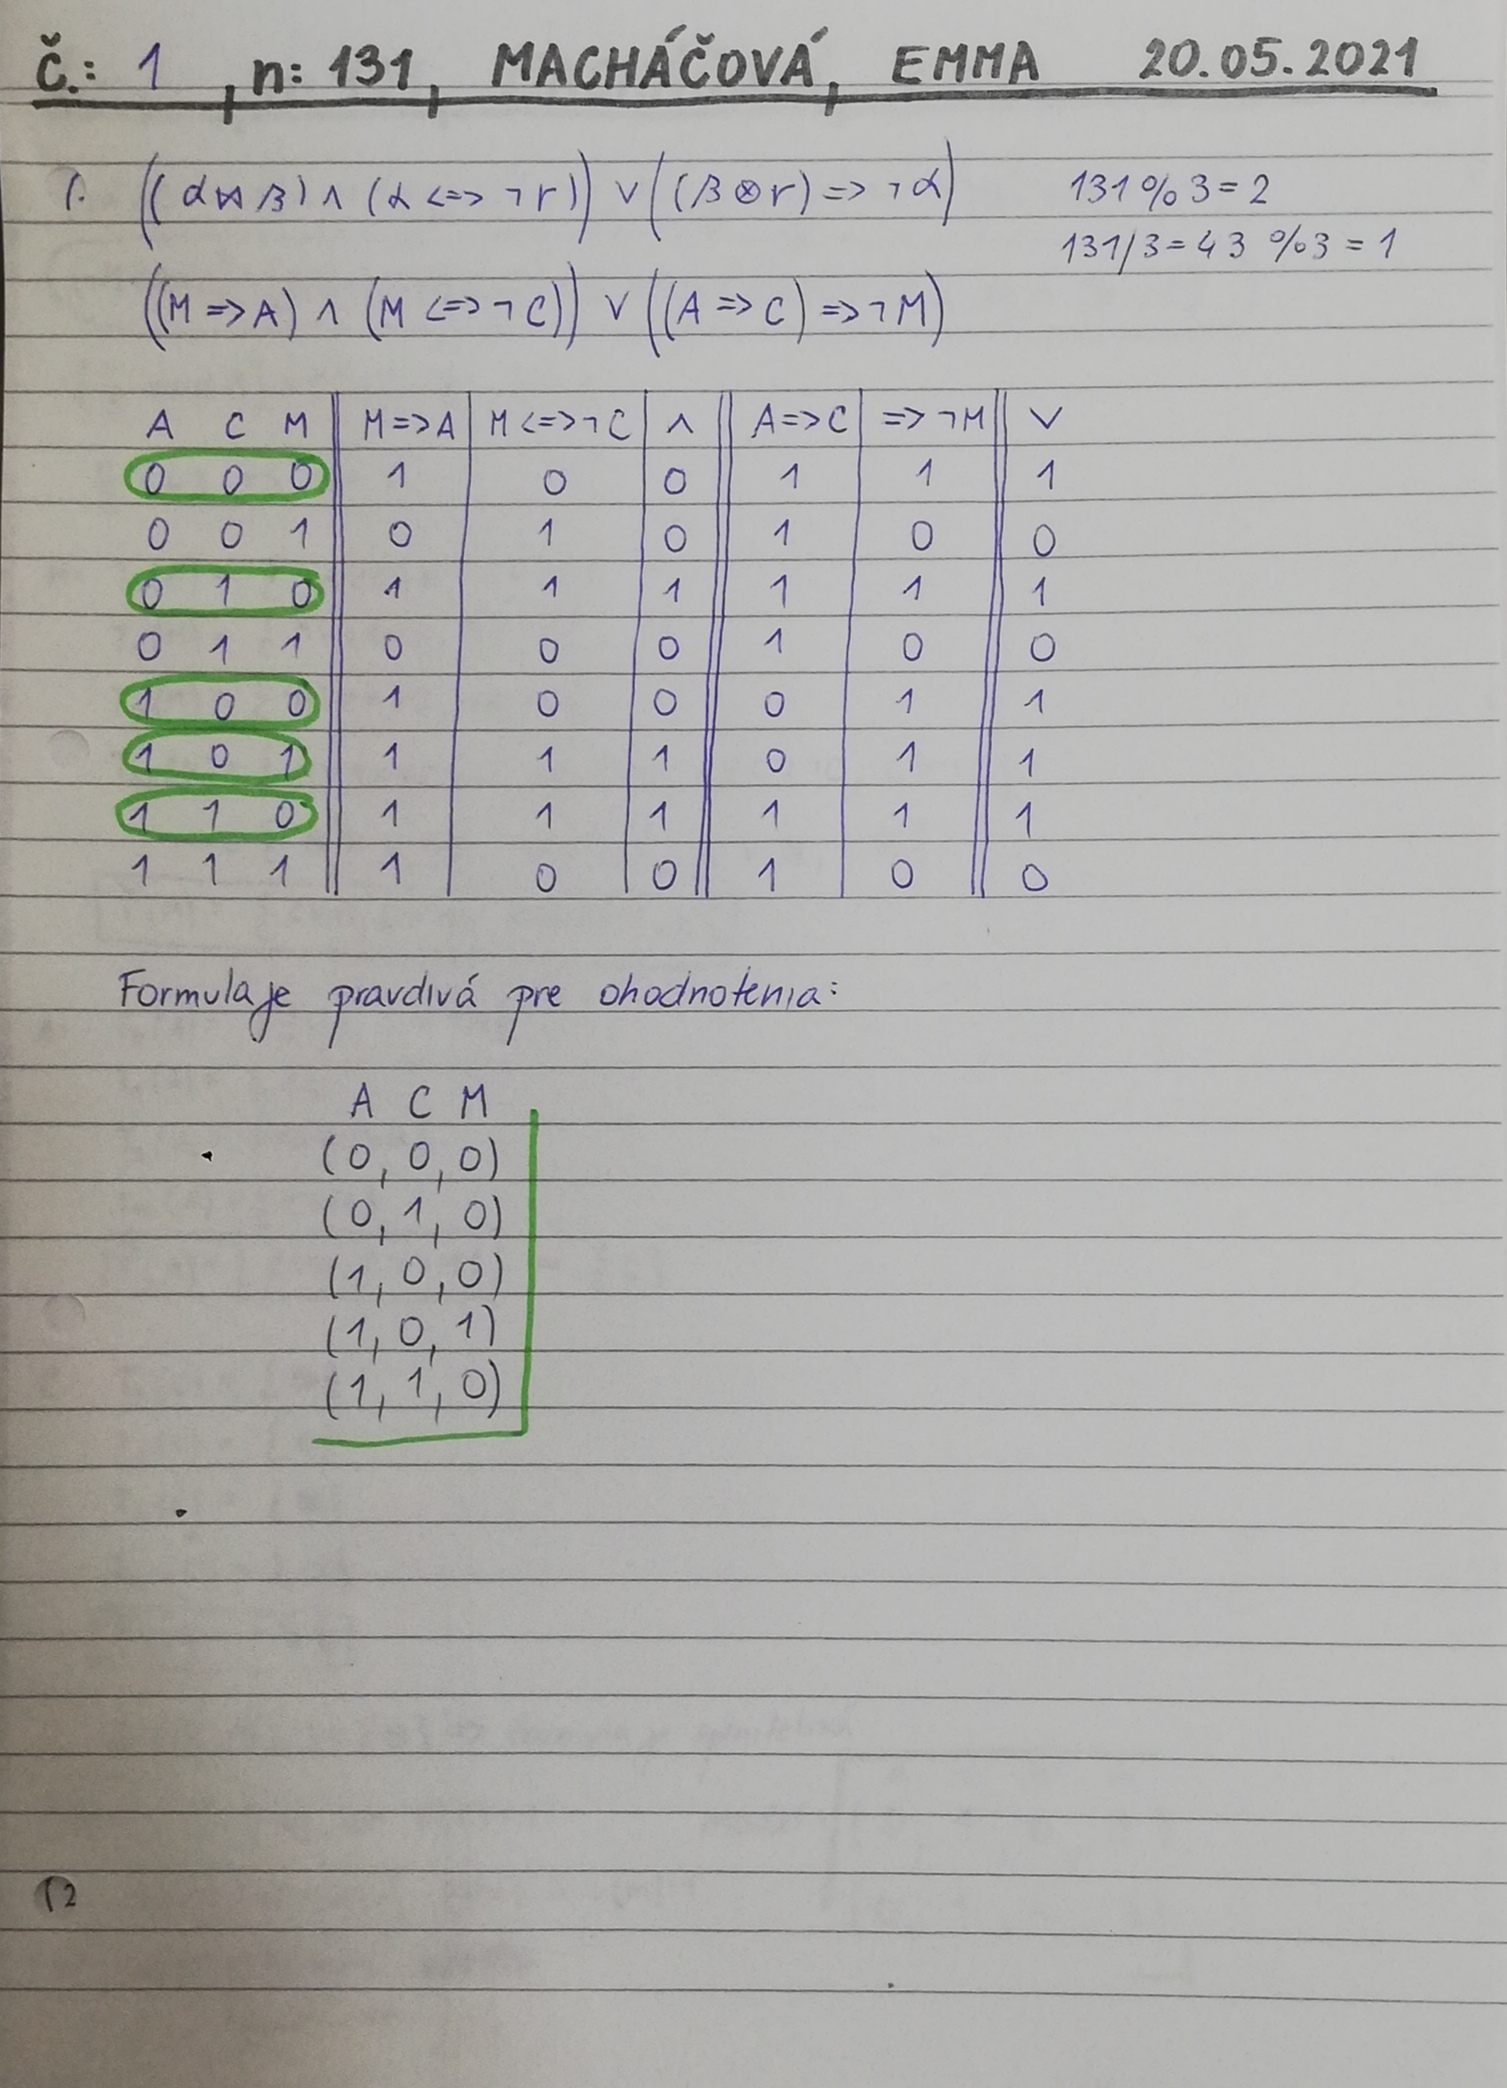 č.: 1, n: 131, MACHÁČOVÁ, EMMA 20.05.2021
1. ((α ⋈ β) ∧ (α <=> ¬r)) ∨ ((β ⊗ r) => ¬α) 131 % 3 = 2
131/3 = 43 % 3 = 1
((M => A) ∧ (M <=> ¬C)) ∨ ((A => C) => ¬M)
A C M M => A M <=> ¬C ∧ A => C => ¬M ∨
0 0 0 1 0 0 1 1 1
0 0 1 0 1 0 1 0 0
0 1 0 1 1 1 1 1 1
0 1 1 0 0 0 1 0 0
1 0 0 1 0 0 0 1 1
1 0 1 1 1 1 0 1 1
1 1 0 1 1 1 1 1 1
1 1 1 1 0 0 1 0 0
Formula je pravdivá pre ohodnotenia:
A C M
(0, 0, 0)
(0, 1, 0)
(1, 0, 0)
(1, 0, 1)
(1, 1, 0)